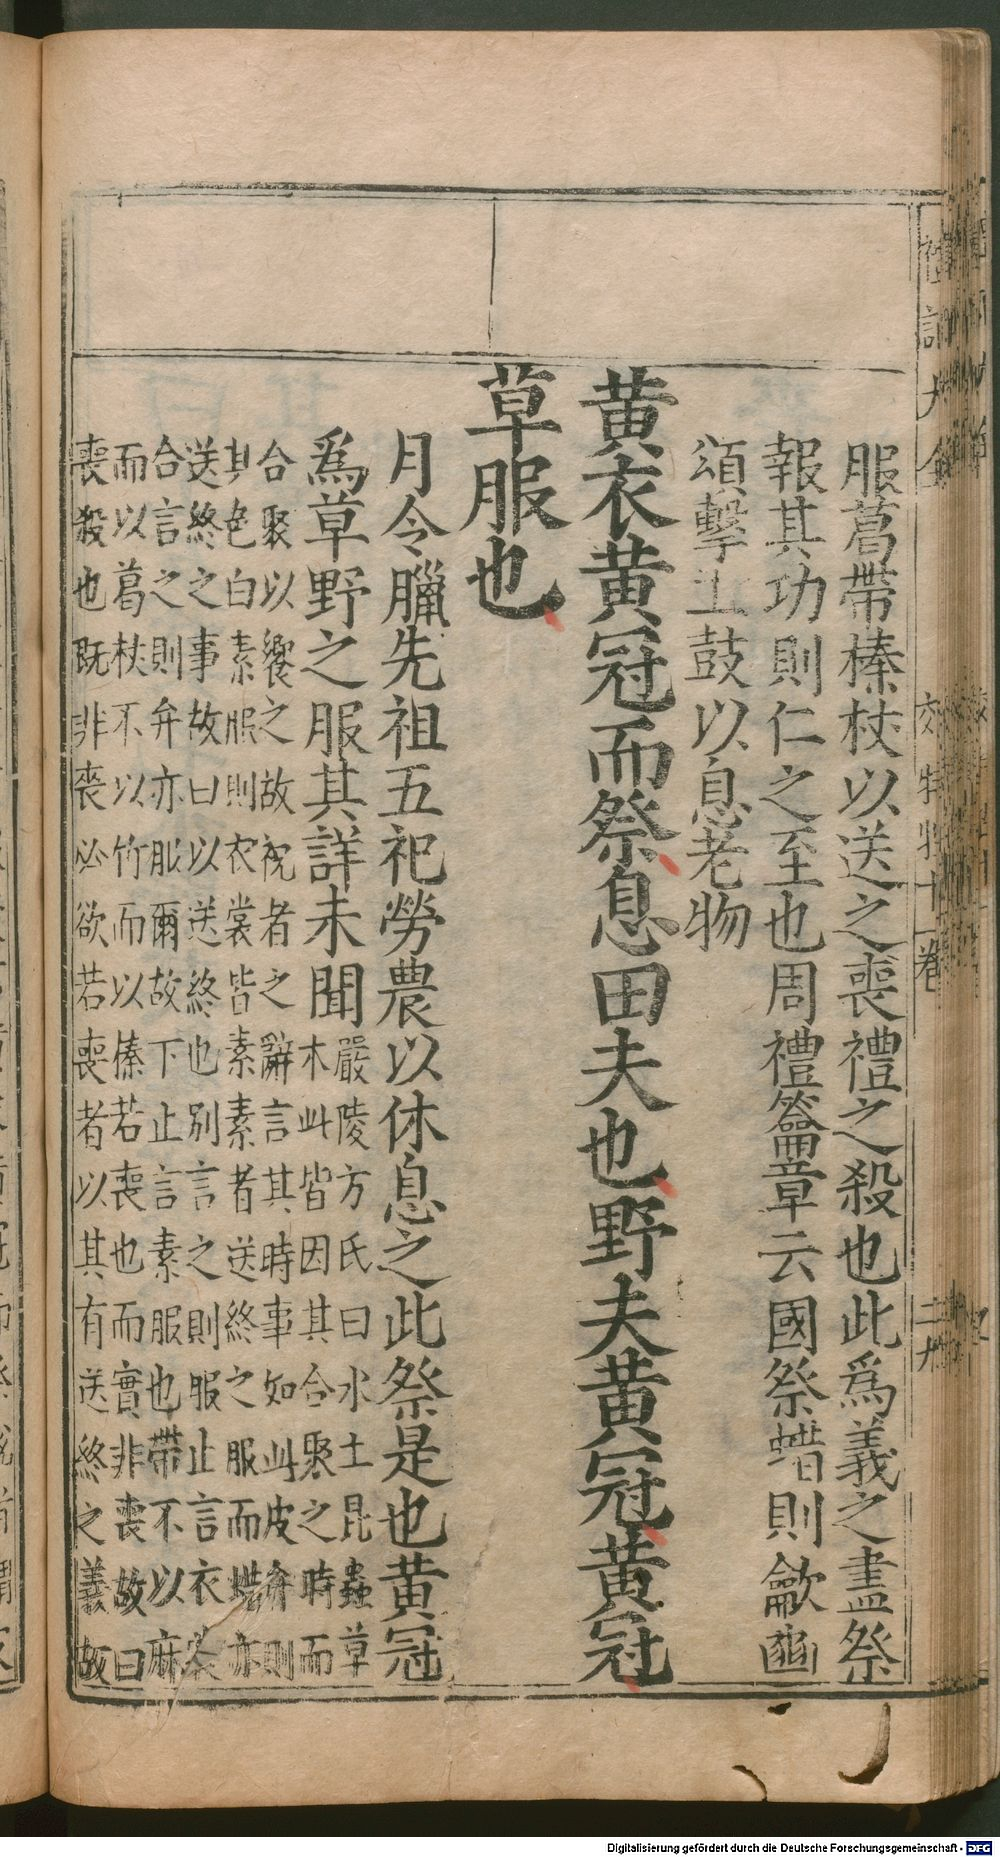 禮記大全
郊特牲十一卷
服葛帶榛杖以送之喪禮之殺也此爲義之盡祭
報其功則仁之至也周禮籥章云國祭蜡則龡豳
頌擊土鼓以息老物
黃衣黃冠而祭息田夫也野夫黃冠黃冠
草服也
月令臘先祖五祀勞農以休息之此祭是也黃冠
爲草野之服其詳未聞
嚴陵方氏曰水土昆蟲草
木此皆因其合聚之時而
合聚以饗之故祝者之辭言其時事如此皮弁則
其色白素服則衣裳皆素素者送終之服而蜡亦
送終之事故曰以送終也別言之則服止言衣裳
合言之則弁亦服爾故下止言素服也帶不以麻
而以葛杖不以竹而以榛若喪也而實非喪故曰
喪殺也既非喪必欲若喪者以其有送終之義故
Digitalisierung gefördert durch die Deutsche Forschungsgemeinschaft - DFG